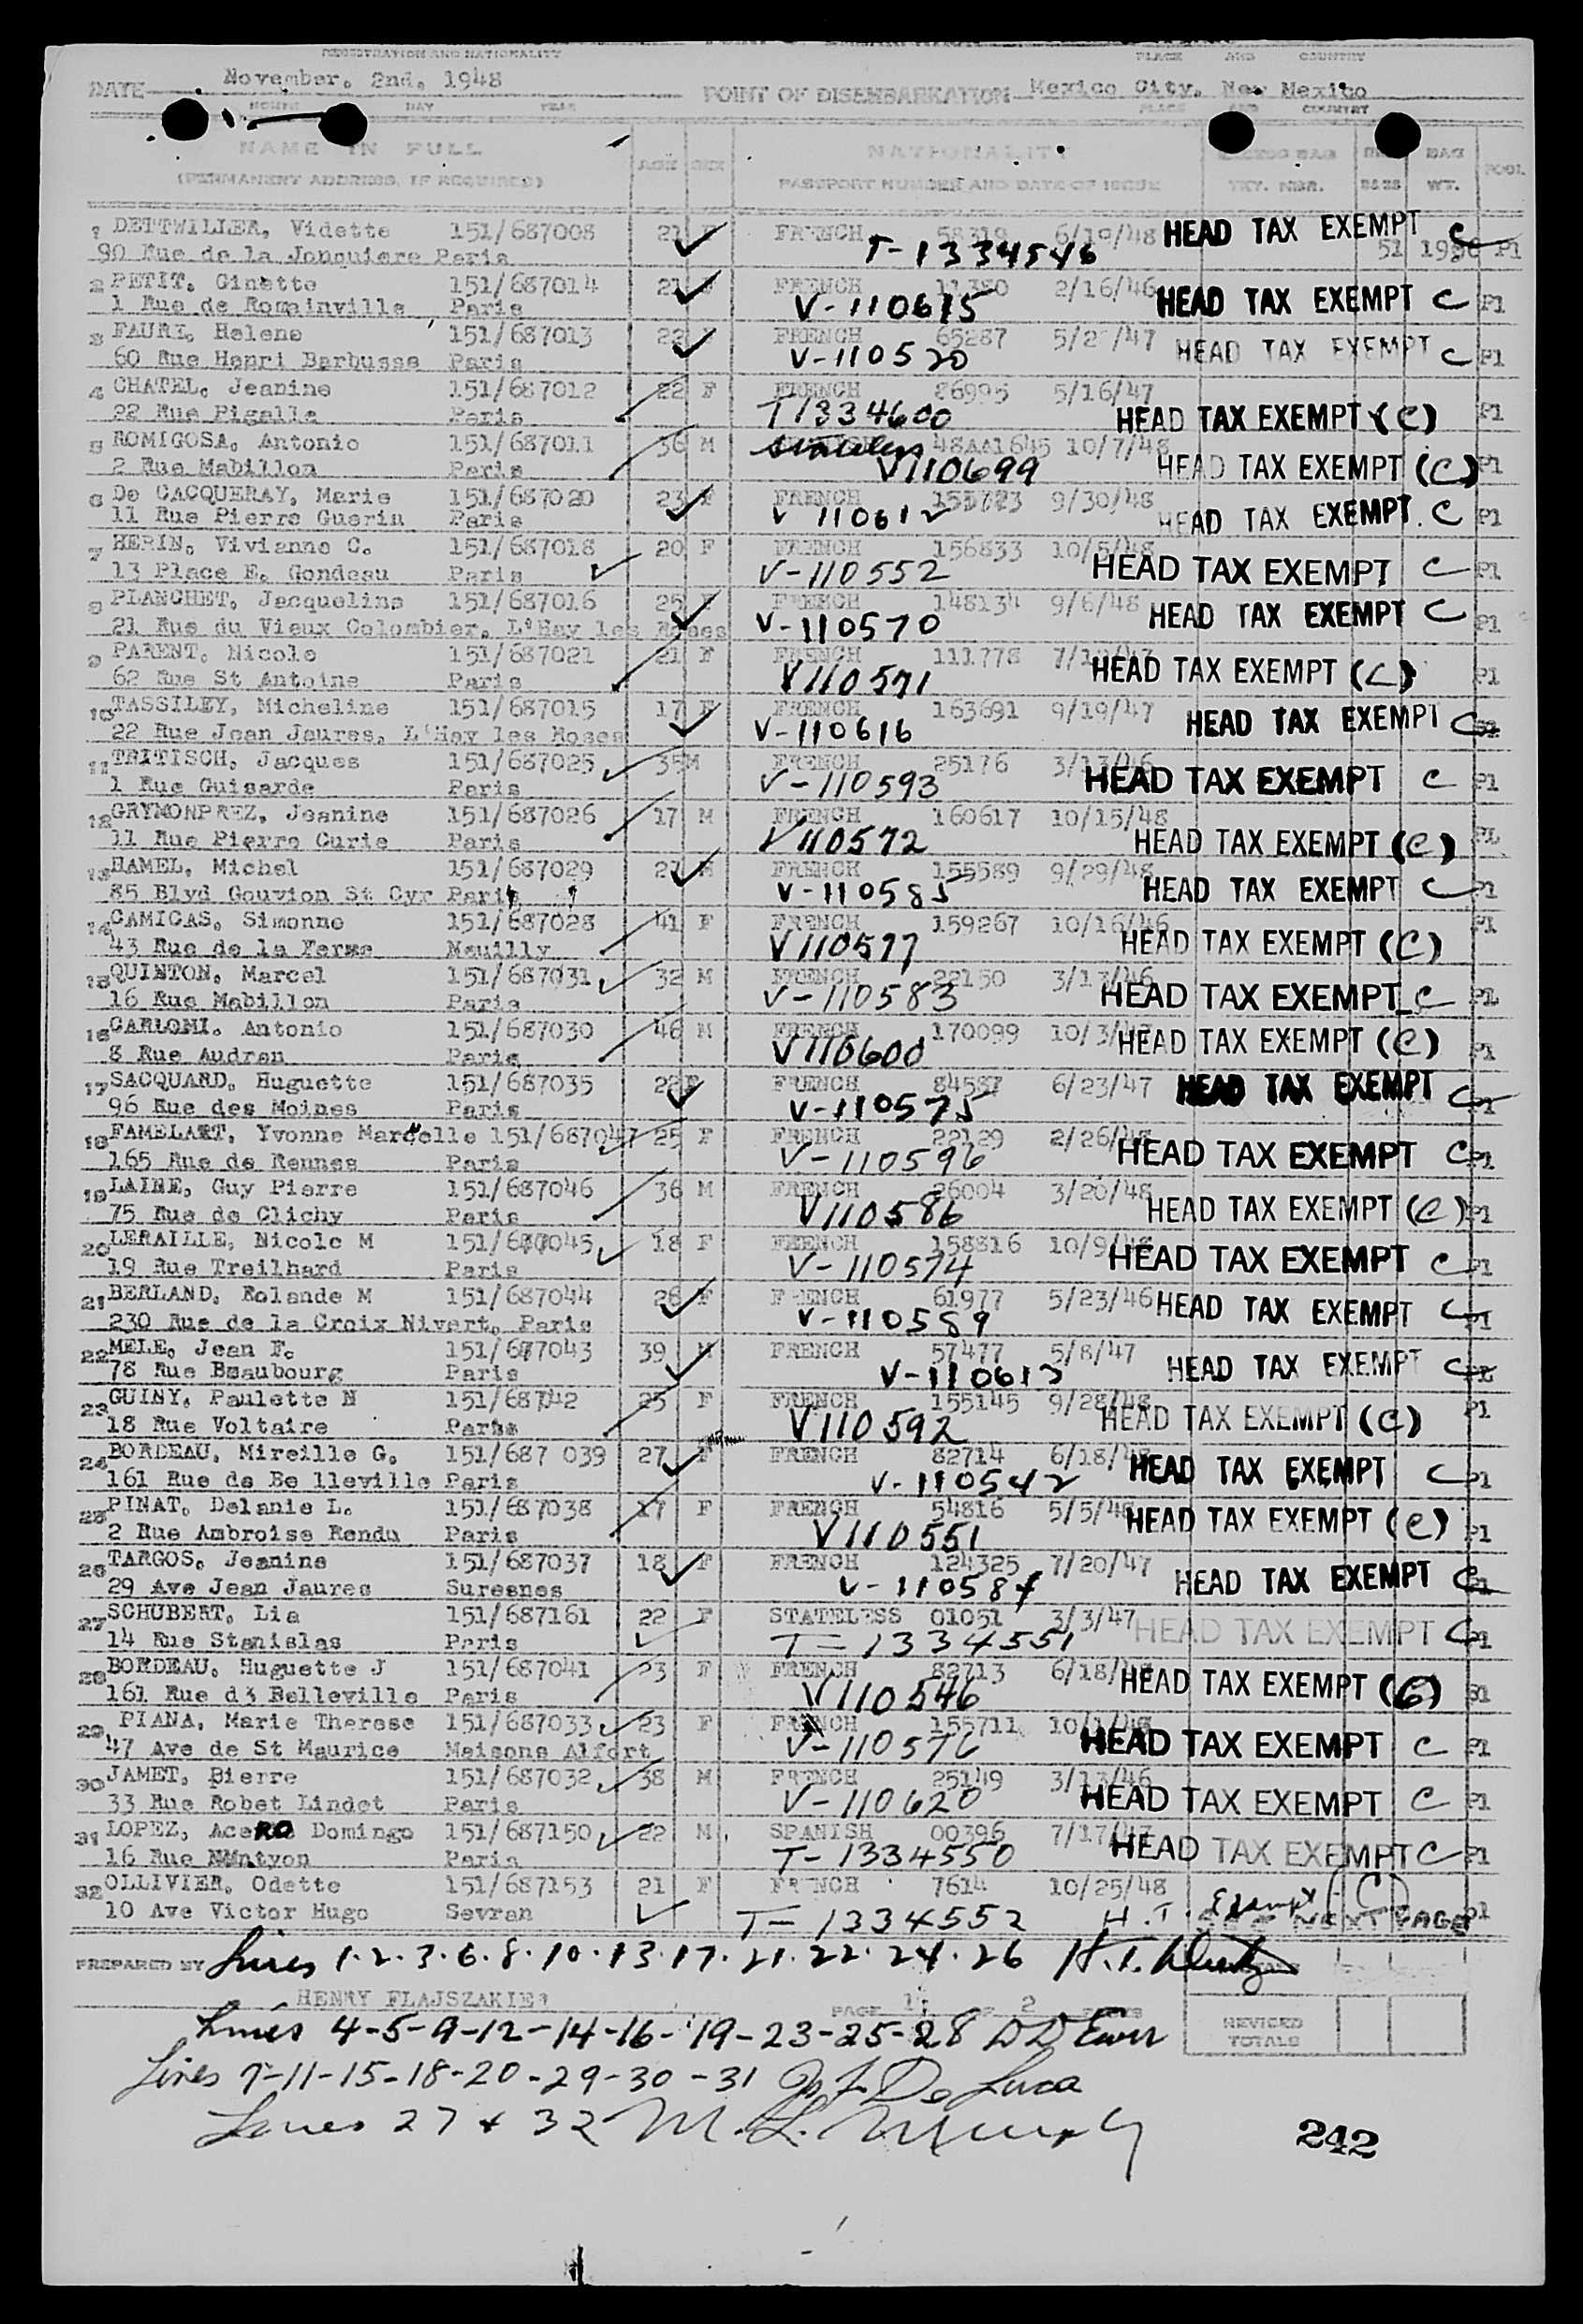 REGISTRATION AND NATIONALITY PLACE AND COUNTRY
DATE November. 2nd. 1948 POINT OF DISEMBARKATION Mexico City. New Mexico
MONTH DAY YEAR PLACE AND COUNTRY
NAME IN FULL AGE SEX NATIONALITY BAG WT.
(PERMANENT ADDRESS, IF REQUIRED) PASSPORT NUMBER AND DATE OF ISSUE TKT. NBR.
1 DETTWILLER, Vidette 151/687008 21 FRENCH 58319 6/19/48 HEAD TAX EXEMPT C
90 Rue de la Jonquiere Paris T-1334546 51 P1
2 PETIT. Ginette 151/687014 21 FRENCH 11380 2/16/46 HEAD TAX EXEMPT C P1
1 Rue de Romainville Paris V-110615
3 FAURI. Helene 151/687013 22 FRENCH 65287 HEAD TAX EXEMPT C P1
60 Rue Henri Barbusse Paris V-110520
4 CHATEL. Jeanine 151/687012 22 F FRENCH 86995 5/16/47
22 Rue Pigalle Paris T1334600 HEAD TAX EXEMPT (C) P1
5 ROMIGOSA. Antonio 151/687011 36 M stateless 48AA1645 10/7/48
2 Rue Mabillon Paris V110699 HEAD TAX EXEMPT (C) P1
6 De CACQUERAY, Marie 151/687020 23 F FRENCH 9/30/48
11 Rue Pierre Guerin Paris V 110612 HEAD TAX EXEMPT. C P1
7 HERIN. Vivianne C. 151/687018 20 F FRENCH 156833 10/5/48
13 Place E. Gondeau Paris V-110552 HEAD TAX EXEMPT C P1
8 PLANCHET. Jacqueline 151/687016 25 F FRENCH 148134 9/6/48 HEAD TAX EXEMPT C
21 Rue du Vieux Colombier. L'Hay les Roses V-110570 P1
9 PARENT. Nicole 151/687021 21 F FRENCH 111778 HEAD TAX EXEMPT (C)
62 Rue St Antoine Paris V110571 P1
10 TASSILEY, Micheline 151/687015 17 F FRENCH 163691 9/19/47 HEAD TAX EXEMPT C
22 Rue Jean Jaures. L'Hay les Roses V-110616
11 TRITISCH. Jacques 151/687025 35 M FRENCH 25176 3/13/46
1 Rue Guisarde Paris V-110593 HEAD TAX EXEMPT C P1
12 GRYMONPREZ, Jeanine 151/687026 17 M FRENCH 160617 10/15/48
11 Rue Pierre Curie Paris V110572 HEAD TAX EXEMPT (C) P1
13 HAMEL. Michel 151/687029 21 M FRENCH 155589 9/29/48
85 Blvd Gouvion St Cyr Paris V-110585 HEAD TAX EXEMPT C P1
14 CAMICAS. Simonne 151/687028 41 F FRENCH 159267 10/16/46 P1
43 Rue de la Ferme Neuilly V110577 HEAD TAX EXEMPT (C)
15 QUINTON. Marcel 151/687031 32 M FRENCH 22150 3/13/46
16 Rue Mabillon Paris V-110583 HEAD TAX EXEMPT C P1
16 CARLOMI. Antonio 151/687030 46 M FRENCH 170099 HEAD TAX EXEMPT (C)
8 Rue Audran Paris V110600 P1
17 SACQUARD. Huguette 151/687035 22 F FRENCH 84587 6/23/47 HEAD TAX EXEMPT C
96 Rue des Moines Paris V-110575
18 FAMELART, Yvonne Marcelle 151/687047 25 F FRENCH 22129 2/26/48
165 Rue de Rennes Paris V-110596 HEAD TAX EXEMPT C P1
19 LAINE, Guy Pierre 151/687046 36 M FRENCH 26004 3/20/48
75 Rue de Clichy Paris V110586 HEAD TAX EXEMPT (C) P1
20 LERAILLE, Nicole M 151/687045 18 F FRENCH 158816 10/9/48
19 Rue Treilhard Paris V-110574 HEAD TAX EXEMPT C P1
21 BERLAND. Rolande M 151/687044 26 F FRENCH 61977 5/23/46 HEAD TAX EXEMPT C
230 Rue de la Croix Nivert. Paris V-110589
22 MELE. Jean F. 151/677043 39 M FRENCH 57477 5/8/47
78 Rue Beaubourg Paris V-110613 HEAD TAX EXEMPT C
23 GUINY. Paulette N 151/687042 25 F FRENCH 155145 9/28/48 P1
18 Rue Voltaire Paris V110592 HEAD TAX EXEMPT (C)
24 BORDEAU, Mireille G. 151/687 039 27 F FRENCH 82714 6/18/48
161 Rue de Be lleville Paris V-110542 HEAD TAX EXEMPT C P1
25 PINAT. Delanie L. 151/687038 17 F FRENCH 54816 5/5/48
2 Rue Ambroise Rendu Paris V110551 HEAD TAX EXEMPT (C) P1
26 TARGOS. Jeanine 151/687037 18 F FRENCH 124325 7/20/47
29 Ave Jean Jaures Suresnes V-110584 HEAD TAX EXEMPT C
27 SCHUBERT. Lia 151/687161 22 F STATELESS 01051 3/3/47
14 Rue Stanislas Paris T=1334551 HEAD TAX EXEMPT C P1
28 BORDEAU. Huguette J 151/687041 23 F FRENCH 82713 6/18/48
161 Rue de Belleville Paris V110546 HEAD TAX EXEMPT (C)
29. PIANA, Marie Therese 151/687033 23 F FRENCH 155711 10/1/48
47 Ave de St Maurice Maisons Alfort V-110576 HEAD TAX EXEMPT C P1
30 JAMET, Pierre 151/687032 38 M FRENCH 25149 3/13/46
33 Rue Robet Lindet Paris V-110620 HEAD TAX EXEMPT C P1
31 LOPEZ, Acero Domingo 151/687150 22 M. SPANISH 00396 7/17/47
16 Rue Paris T-1334550 HEAD TAX EXEMPT C P1
32 OLLIVIER, Odette 151/687153 21 F FRENCH 7614 10/25/48
10 Ave Victor Hugo Sevran T=1334552 H.T. Exempt (C) P1
SEE NEXT PAGE
PREPARED BY Lines 1.2.3.6.8.10.13.17.21.22.24.26
HENRY FLAJSZAKIER PAGE 1 OF 2 PAGES
Lines 4-5-9-12-14-16-19-23-25-28 REVISED TOTALS
Lines 7-11-15-18-20-29-30-31 De Luca
Lines 27 + 32 M. L. Murphy
242